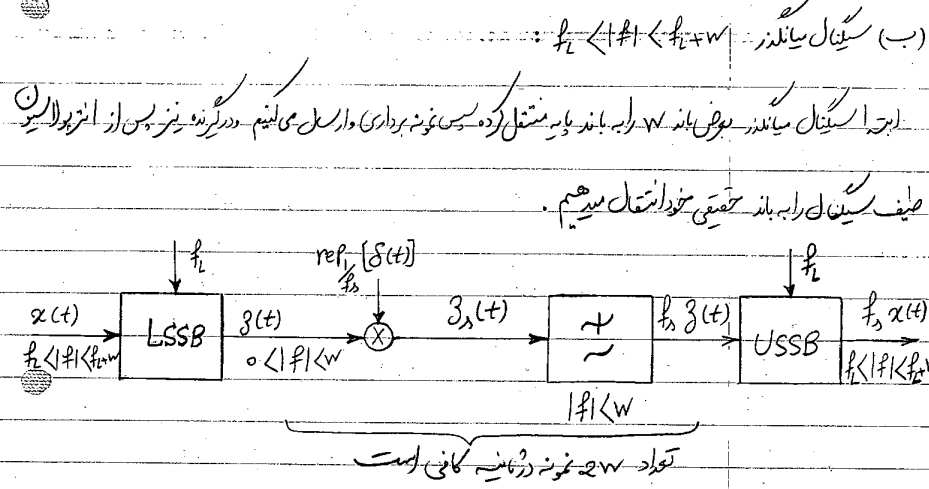 (ب) سیگنال میانگذر f_L < |f| < f_L + W :
ابتدا سیگنال میانگذر بعرض باند W را به باند پایه منتقل کرده سپس نمونه برداری و ارسال می کنیم و در گیرنده نیز پس از انترپولاسیون
طیف سیگنال را به باند حقیقی خود انتقال میدهیم .
f_L rep_{1/f_s} [δ(t)] f_L
x(t) LSSB z(t) × z_s(t) f_s z(t) USSB f_s x(t)
f_L < |f| < f_L+W 0 < |f| < W f_L < |f| < f_L+W
|f| < W
تعداد 2W نمونه در ثانیه کافی است